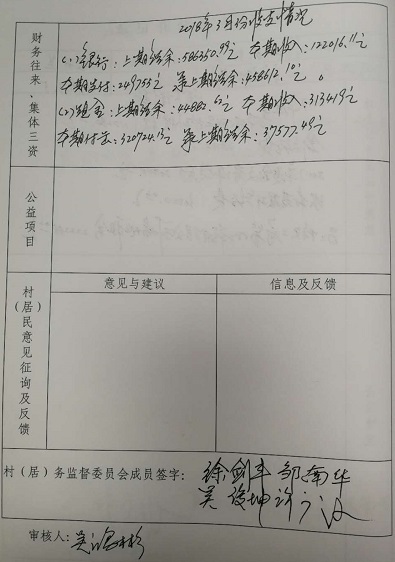 财务往来、集体三资
2018年3月份收支情况
(1)银行:上期结余:586350.99元 本期收入:122016.11元
本期支付:249755元 累上期结余:458612.10元。
(2)现金:上期结余:44882.62元 本期收入:313419元
本期付出:320724.13元 累上期结余:37577.49元
公益项目
村(居)民意见征询及反馈
意见与建议
信息及反馈
村(居)务监督委员会成员签字:
徐剑平 邹南华
吴俊坤
审核人: